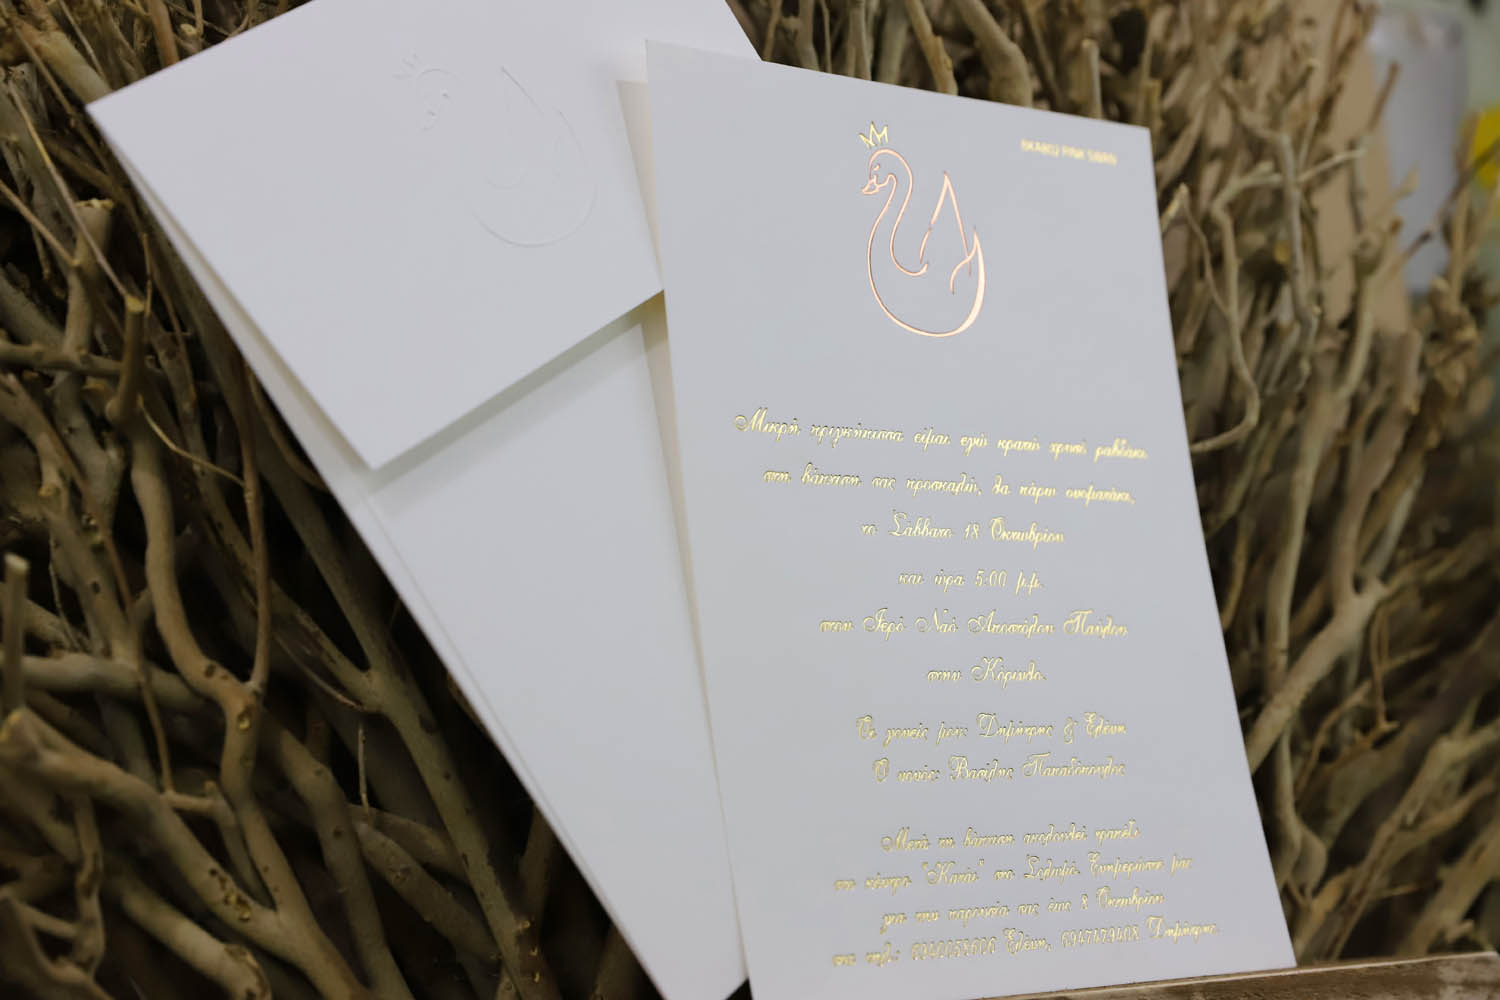 Μικρή πριγκίπισσα είμαι εγώ κρατώ χρυσό ραβδάκι
στη βάπτιση σας προσκαλώ, θα πάρω ονοματάκι,
το Σάββατο 18 Οκτωβρίου
και ώρα 5:00 μ.μ.
στον Ιερό Ναό Αποστόλου Παύλου
στην Κόρινθο.
Οι γονείς μου: Δημήτρης & Ελένη
Ο νονός: Βασίλης Παπαδόπουλος
Μετά τη βάπτιση ακολουθεί τραπέζι
στο κέντρο "Κατάι" στο Σολωμό. Ενημερώστε μας
για την παρουσία σας έως 8 Οκτωβρίου
στα τηλ: Ελένη, 6947479408 Δημήτρης.